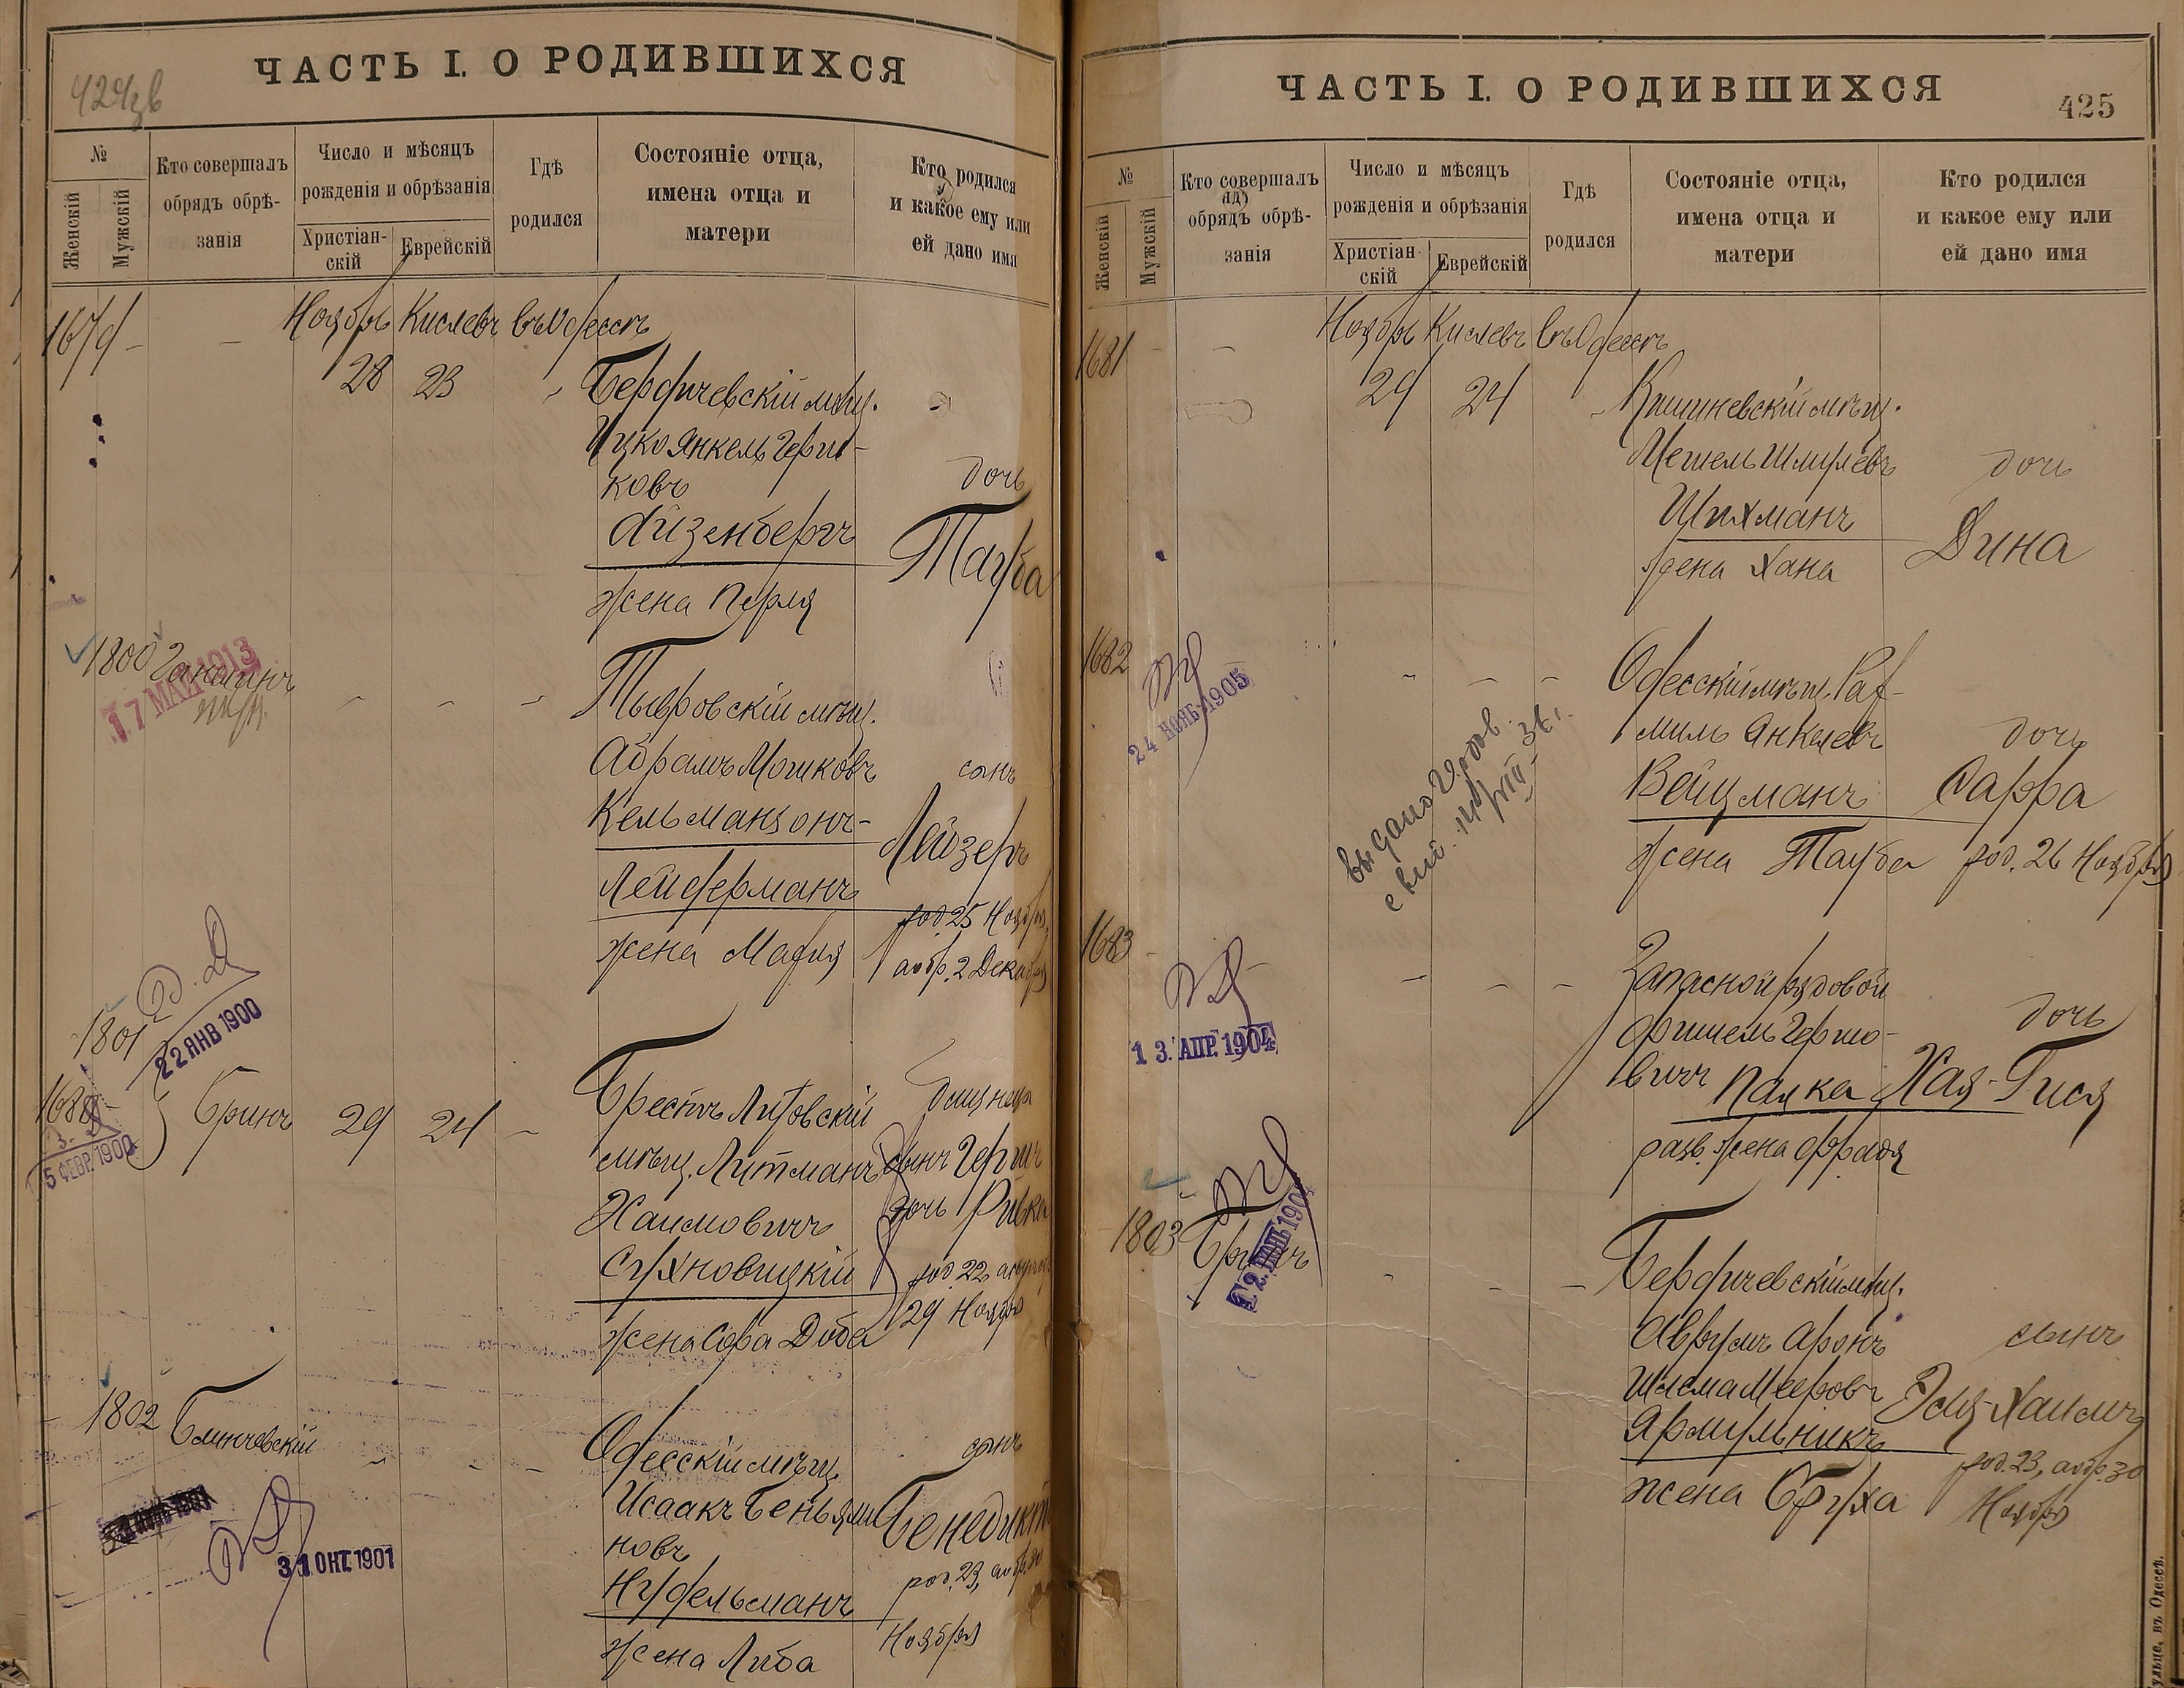 ЧАСТЬ I. О РОДИВШИХСЯ
№
Женскій
Мужскій
Кто совершалъ
обрядъ обрѣ-
занія
Число и мѣсяцъ
рожденія и обрѣзанія
Христіан-
скій
Еврейскій
Гдѣ
родился
Состояніе отца,
имена отца и
матери
Кто родился
и какое ему или
ей дано имя
1679 -
Ноябрь Кислевъ въ Одессѣ
28 23
Бердичевскій мѣщ.
Ицко Янкель Герш-
ковъ
Айзенбергъ
жена Перля
дочь
Тауба
1800
17 МАЙ 1913
мѣщ.
Абрамъ Мошковъ
Кельманзонъ-
Лейферманъ
жена Мария
сынъ
Лейзеръ
род. 25 Ноября,
обр. 2 Декабря
1801
22 ЯНВ 1900
1680
5 ФЕВР. 1900
Бринъ
29 24
Брестъ Литовскій
мѣщ. Литманъ
Хаимовичъ
Сухновицкій
жена Сора Доба
двойня
сынъ Гершъ
дочь Ривка
род. 22
29 Ноября
1802
31 ОКТ. 1901
Одесскій мѣщ.
Исаакъ Беньями
новъ
Нудельманъ
жена Либа
сынъ
Бенедиктъ
род. 23, обр. 30
Ноября
ЧАСТЬ I. О РОДИВШИХСЯ
425
№
Женскій
Мужскій
Кто совершалъ
обрядъ обрѣ-
занія
Число и мѣсяцъ
рожденія и обрѣзанія
Христіан-
скій
Еврейскій
Гдѣ
родился
Состояніе отца,
имена отца и
матери
Кто родился
и какое ему или
ей дано имя
1681
Ноябрь Кислевъ въ Одессѣ
29 24
Кишиневскій мѣщ.
Мешель Шмулевъ
Шихманъ
жена Хана
дочь
Дина
1682
24 НОЯБ 1905
Одесскій мѣщ. Рах-
миль Янкелевъ
Вейцманъ
жена Тауба
дочь
Сарра
род. 26 Ноября
1683
13. АПР. 1904
Запасной рядовой
Фишель Гершо-
вичъ Палка
разв. жена Фрадя
дочь
Хая-Гися
1803
Бринъ
Бердичевскій мѣщ.
Аврумъ Аронъ
Шлема Мееровъ
Ярмульникъ
жена Бруха
сынъ
Эля-Хаимъ
род. 23, обр. 30
Ноября